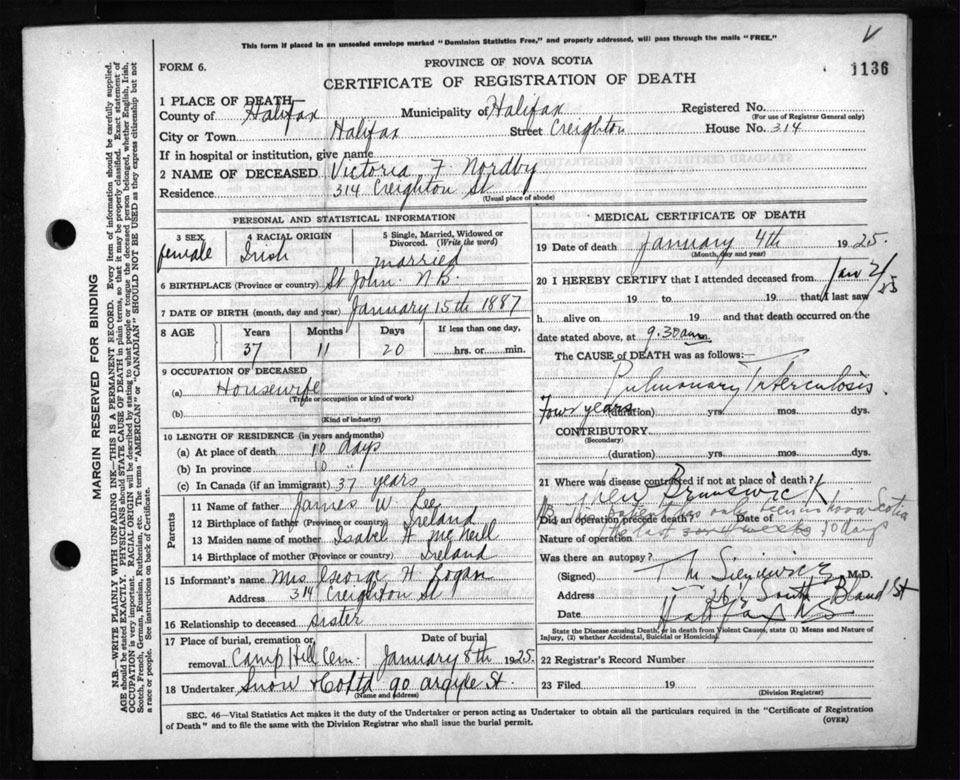 This form if placed in an unsealed envelope marked "Dominion Statistics Free," and properly addressed, will pass through the mails "FREE."
V
FORM 6.
PROVINCE OF NOVA SCOTIA
1136
CERTIFICATE OF REGISTRATION OF DEATH
1 PLACE OF DEATH
County of Halifax Municipality of Halifax Registered No.
(For use of Registrar General only)
City or Town Halifax Street Creighton House No. 314
If in hospital or institution, give name
2 NAME OF DECEASED Victoria F Nordby
Residence 314 Creighton St
(Usual place of abode)
MARGIN RESERVED FOR BINDING
N.B.—WRITE PLAINLY WITH UNFADING INK—THIS IS A PERMANENT RECORD. Every item of information should be carefully supplied.
AGE should be stated EXACTLY. PHYSICIANS should STATE CAUSE OF DEATH in plain terms, so that it may be properly classified. Exact statement of
OCCUPATION is very important. RACIAL ORIGIN will be described by stating to what people or tongue the deceased person belonged, whether English, Irish,
Scotch, French, German, Russian, Ruthenian, etc. The terms "AMERICAN" or "CANADIAN" SHOULD NOT BE USED as they express citizenship but not
a race or people. See instructions on back of Certificate.
PERSONAL AND STATISTICAL INFORMATION
3 SEX
female
4 RACIAL ORIGIN
Irish
5 Single, Married, Widowed or
Divorced. (Write the word)
married
6 BIRTHPLACE (Province or country) St John N.B.
7 DATE OF BIRTH (month, day and year) January 15th 1887
8 AGE
Years Months Days If less than one day,
37 11 20 hrs. or min.
9 OCCUPATION OF DECEASED
(a) Housewife
(Trade or occupation or kind of work)
(b)
(Kind of industry)
10 LENGTH OF RESIDENCE (in years and months)
(a) At place of death 10 days
(b) In province 10 "
(c) In Canada (if an immigrant) 37 years
Parents
11 Name of father James W. Lee
12 Birthplace of father (Province or country) Ireland
13 Maiden name of mother Isabel A McNeill
14 Birthplace of mother (Province or country) Ireland
15 Informant's name Mrs George H. Logan
Address 314 Creighton St
16 Relationship to deceased sister
17 Place of burial, cremation or
removal Camp Hill Cem.
Date of burial
January 8th 1925.
18 Undertaker Snow & Co Ltd 90 Argyle St.
(Name and address)
MEDICAL CERTIFICATE OF DEATH
19 Date of death January 4th 1925.
(Month, day and year)
20 I HEREBY CERTIFY that I attended deceased from Jan 2/25
19 to 19 that I last saw
h alive on 19 and that death occurred on the
date stated above, at 9.30 am
The CAUSE of DEATH was as follows:
Pulmonary Tuberculosis
Four years (duration) yrs. mos. dys.
CONTRIBUTORY
(Secondary)
(duration) yrs. mos. dys.
21 Where was disease contracted if not at place of death?
New Brunswick
This patient has only been in Nova Scotia
Did an operation precede death? Date of
10 days
Nature of operation
Was there an autopsy?
(Signed) M.D.
Address South Bland St
Date Halifax NS
State the Disease causing Death, or in death from Violent Causes, state (1) Means and Nature of
Injury, (2) whether Accidental, Suicidal or Homicidal.
22 Registrar's Record Number
23 Filed 19
(Division Registrar)
SEC. 46—Vital Statistics Act makes it the duty of the Undertaker or person acting as Undertaker to obtain all the particulars required in the "Certificate of Registration
of Death" and to file the same with the Division Registrar who shall issue the burial permit.
(OVER)